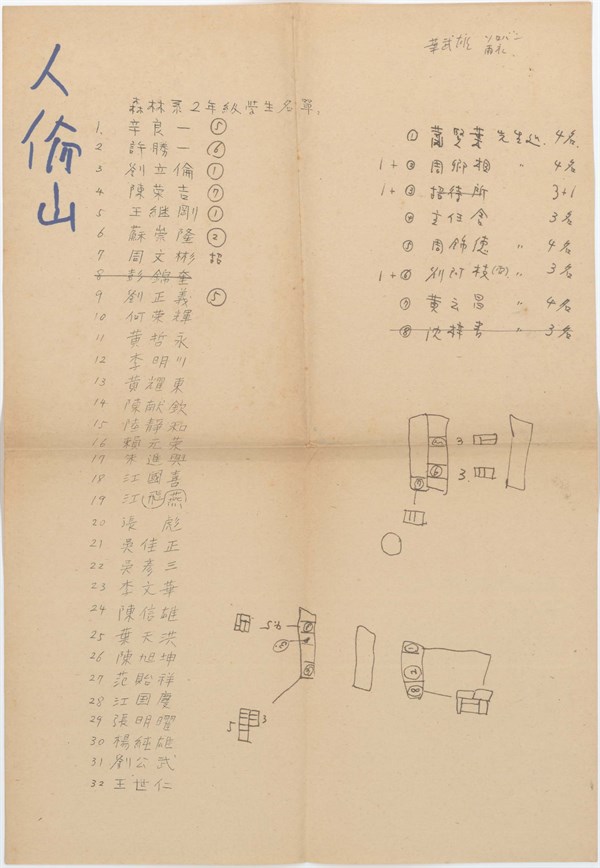 人倫山
華武雄 ソロバン
森林系2年級學生名單.
1. 辛良一 ⑤
2 許勝一 ⑥
3 劉立倫 ①
4 陳榮吉 ⑦
5 王継剛 ①
6 蘇崇隆 ②
7 周文彬 招
8 彭錦奎
9 劉正義 ⑤
10 何荣輝
11 黃哲永
12 李明川
13 黃耀東
14 陳献欽
15 陸靜
16 賴元荣
17 朱進興
18 江國喜
19 江飛燕
20 張彪
21 吳佳正
22 吳彥三
23 李文華
24 陳信雄
25 葉天洪
26 陳旭坤
27 范貽祥
28 江国慶
29 張明曜
30 楊純雄
31 劉公武
32 王世仁
① 蕭賢葉 先生 4名.
1+② 周鄉相 〃 4名
1+③ 招待所 3+1
④ 主任舍 3名
⑤ 周錦德 〃 4名
1+⑥ 劉阿枝 〃 3名
⑦ 黃云昌 〃 4名
⑧ 沈梓書 〃 3名
3
3
5
3